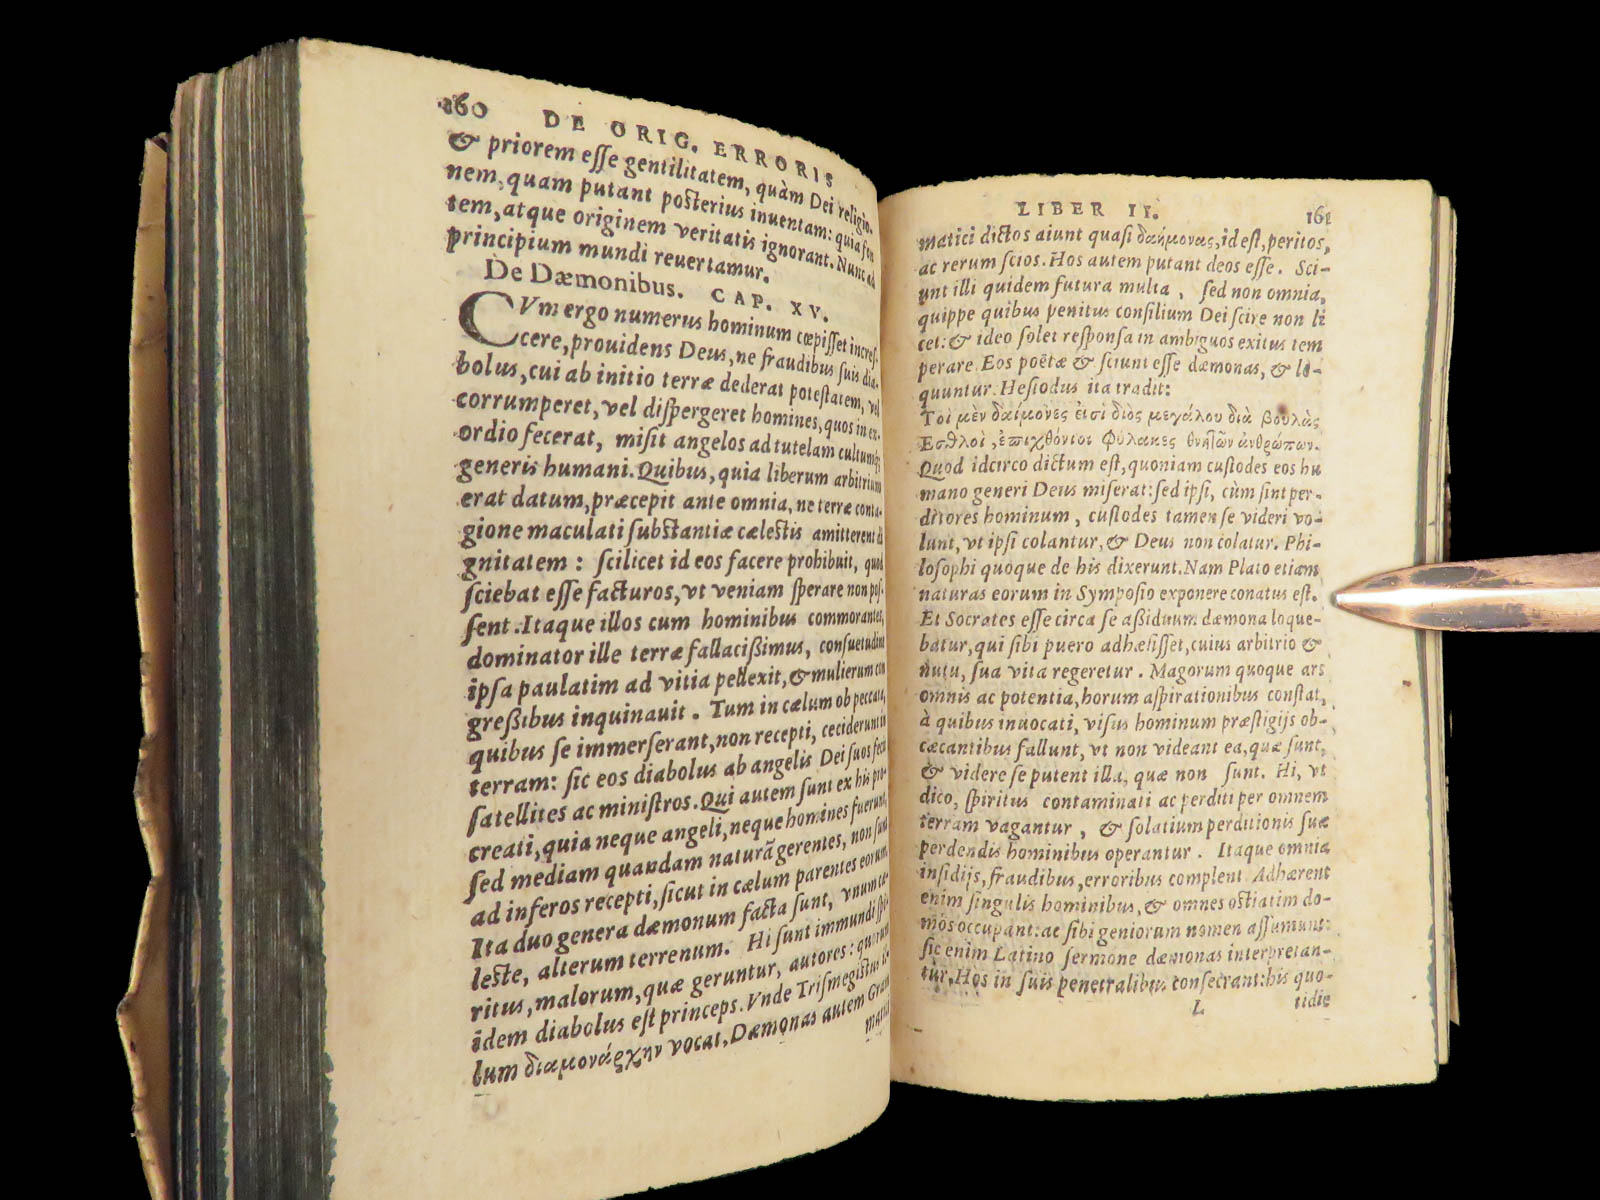 160 DE ORIG. ERRORIS
& priorem eſſe gentilitatem, quàm Dei religio-
nem, quam putant poſterius inuentam: quia fon
tem, atque originem veritatis ignorant. Nunc ad
principium mundi reuertamur.
De Dæmonibus. CAP. XV.
CVm ergo numerus hominum cœpiſſet increſ-
cere, prouidens Deus, ne fraudibus ſuis dia-
bolus, cui ab initio terræ dederat poteſtatem, vel
corrumperet, vel diſpergeret homines, quos in ex-
ordio fecerat, miſit angelos ad tutelam cultumq;
generis humani. Quibus, quia liberum arbitrium
erat datum, præcepit ante omnia, ne terræ conta-
gione maculati ſubſtantiæ cæleſtis amitterent di
gnitatem: ſcilicet id eos facere prohibuit, quod
ſciebat eſſe facturos, vt veniam ſperare non poſ-
ſent. Itaque illos cum hominibus commorantes,
dominator ille terræ fallacißimus, conſuetudine
ipſa paulatim ad vitia pellexit, & mulierum con
greßibus inquinauit. Tum in cælum ob peccata,
quibus ſe immerſerant, non recepti, ceciderunt in
terram: ſic eos diabolus ab angelis Dei ſuos fecit
ſatellites ac miniſtros. Qui autem ſunt ex his pro-
creati, quia neque angeli, neque homines fuerunt,
ſed mediam quandam naturã gerentes, non ſunt
ad inferos recepti, ſicut in cælum parentes eorum.
Ita duo genera dæmonum facta ſunt, vnum cæ-
leſte, alterum terrenum. Hi ſunt immundi ſpi-
ritus, malorum, quæ geruntur, autores: quorum
idem diabolus eſt princeps. Vnde Triſmegiſtus il-
lum διαμονάρχην vocat, Dæmonas autem Gram
matici
LIBER II. 161
matici dictos aiunt quaſi δαήμονας, id eſt, peritos,
ac rerum ſcios. Hos autem putant deos eſſe. Sci-
unt illi quidem futura multa, ſed non omnia,
quippe quibus penitus conſilium Dei ſcire non li
cet: & ideo ſolet reſponſa in ambiguos exitus tem
perare. Eos poëtæ & ſciunt eſſe dæmonas, & lo-
quuntur. Heſiodus ita tradit:
Τοὶ μὲν δαίμονες εἰσὶ διὸς μεγάλου διὰ βουλὰς
Εσθλοὶ, ἐπιχθόνιοι φύλακες θνητῶν ἀνθρώπων.
Quod idcirco dictum eſt, quoniam cuſtodes eos hu
mano generi Deus miſerat: ſed ipſi, cùm ſint per-
ditores hominum, cuſtodes tamen ſe videri vo-
lunt, vt ipſi colantur, & Deus non colatur. Phi-
loſophi quoque de his dixerunt. Nam Plato etiam
naturas eorum in Sympoſio exponere conatus eſt.
Et Socrates eſſe circa ſe aßiduum dæmona loque-
batur, qui ſibi puero adhæſiſſet, cuius arbitrio &
nutu, ſua vita regeretur. Magorum quoque ars
omnis ac potentia, horum aſpirationibus conſtat,
à quibus inuocati, viſus hominum præſtigijs ob-
cæcantibus fallunt, vt non videant ea, quæ ſunt,
& videre ſe putent illa, quæ non ſunt. Hi, vt
dico, ſpiritus contaminati ac perditi per omnem
terram vagantur, & ſolatium perditionis ſuæ
perdendis hominibus operantur. Itaque omnia
inſidijs, fraudibus, erroribus complent. Adhærent
enim ſingulis hominibus, & omnes oſtiatim do-
mos occupant: ac ſibi geniorum nomen aſſumunt:
ſic enim Latino ſermone dæmonas interpretan-
tur. Hos in ſuis penetralibus conſecrant: his quo-
L tidie